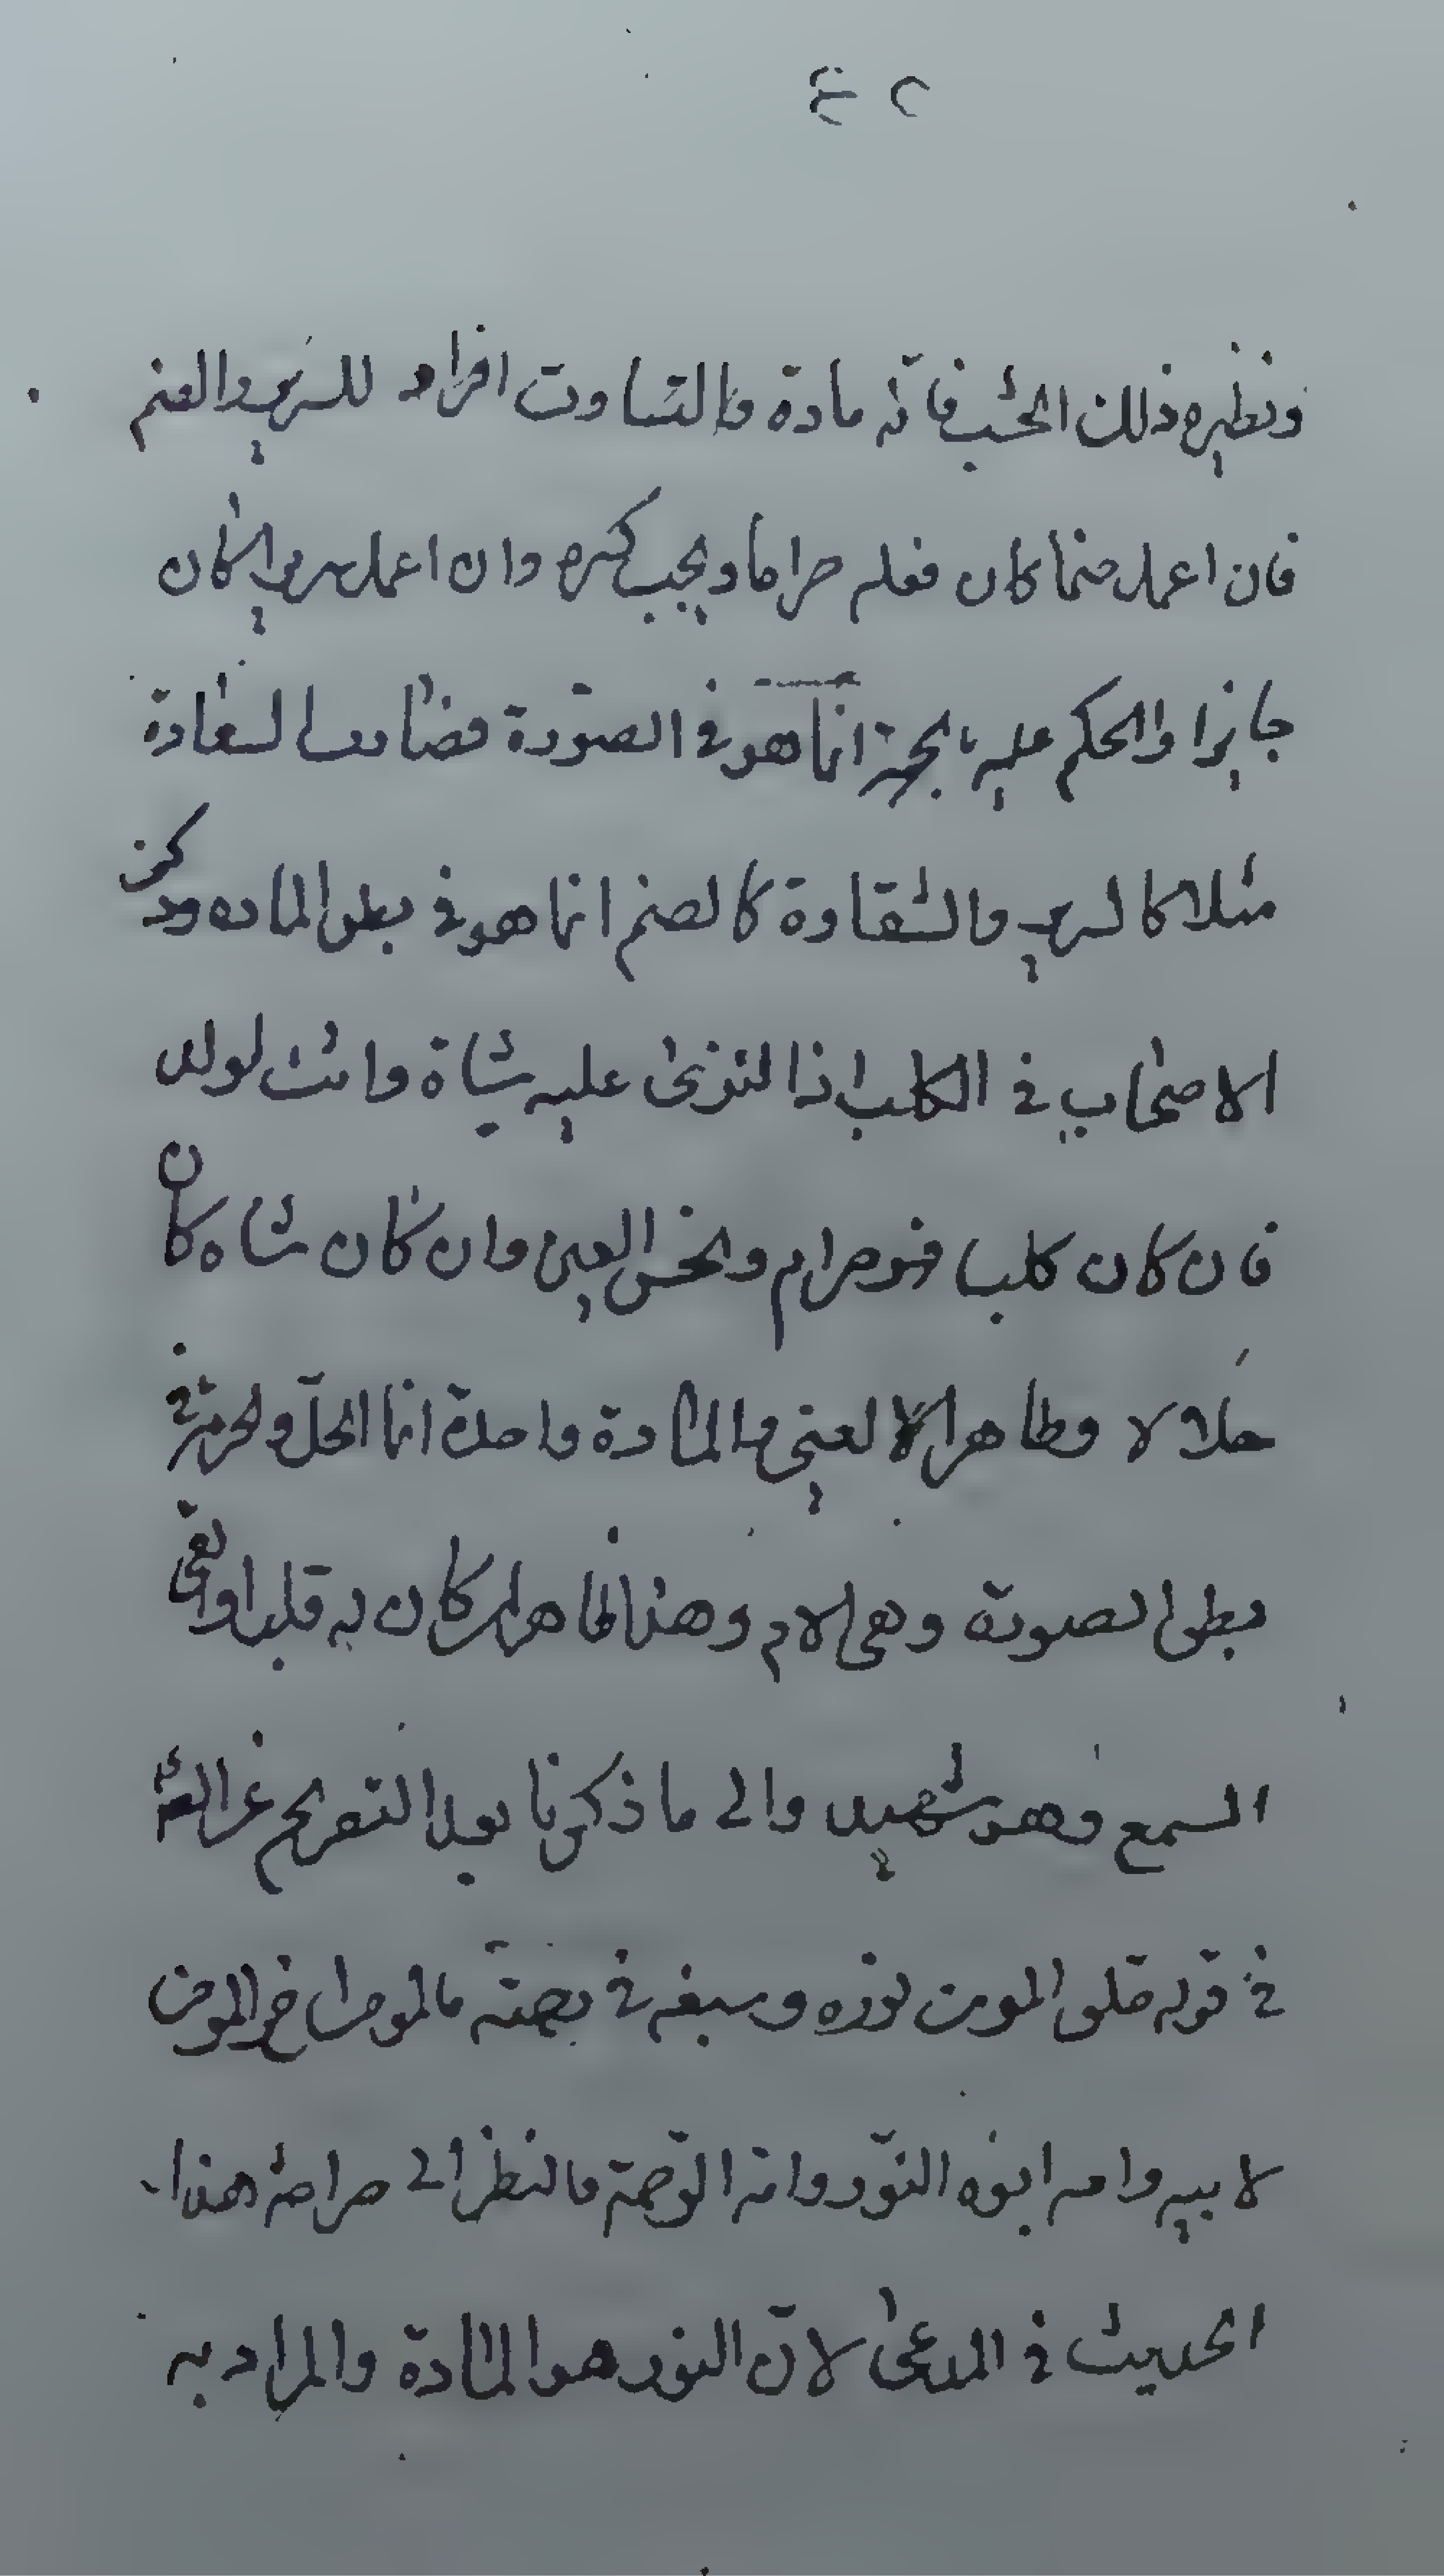 ونظيره ذلك الخشب فانّه مادة والتساوت افراد للسرير والصنم
فان اعمل صنما كان فعله حراما ويجب كسره وان اعمل سريرا كان
جايزا والحكم عليه بالخير انما هو في الصورة فصارت السعادة
مثلا كالسرير والشقاوة كالصنم انما هو في بطن الماده وذكر
الاصحاب في الكلب اذا نزى على شاة واتت بولد
فان كان كلبا فهو حرام ونجس العين وان كان شاه كان
حلالا وطاهر العين والمادة واحدة انما الحلّ والحرمة في
بطن الصورة وهي الام وهذا ظاهر لمن كان له قلب او القى
السمع وهو شهيد والى ما ذكرنا
في قوله خلق المومن نوره وصبغه في رحمته فالمومن اخو المومن
لابيه وامه ابوه النّور وامّه الرّحمة فالنظر الى صراحة هذا
الحديث في المدعى لانّ النور هو المادة والمراد به